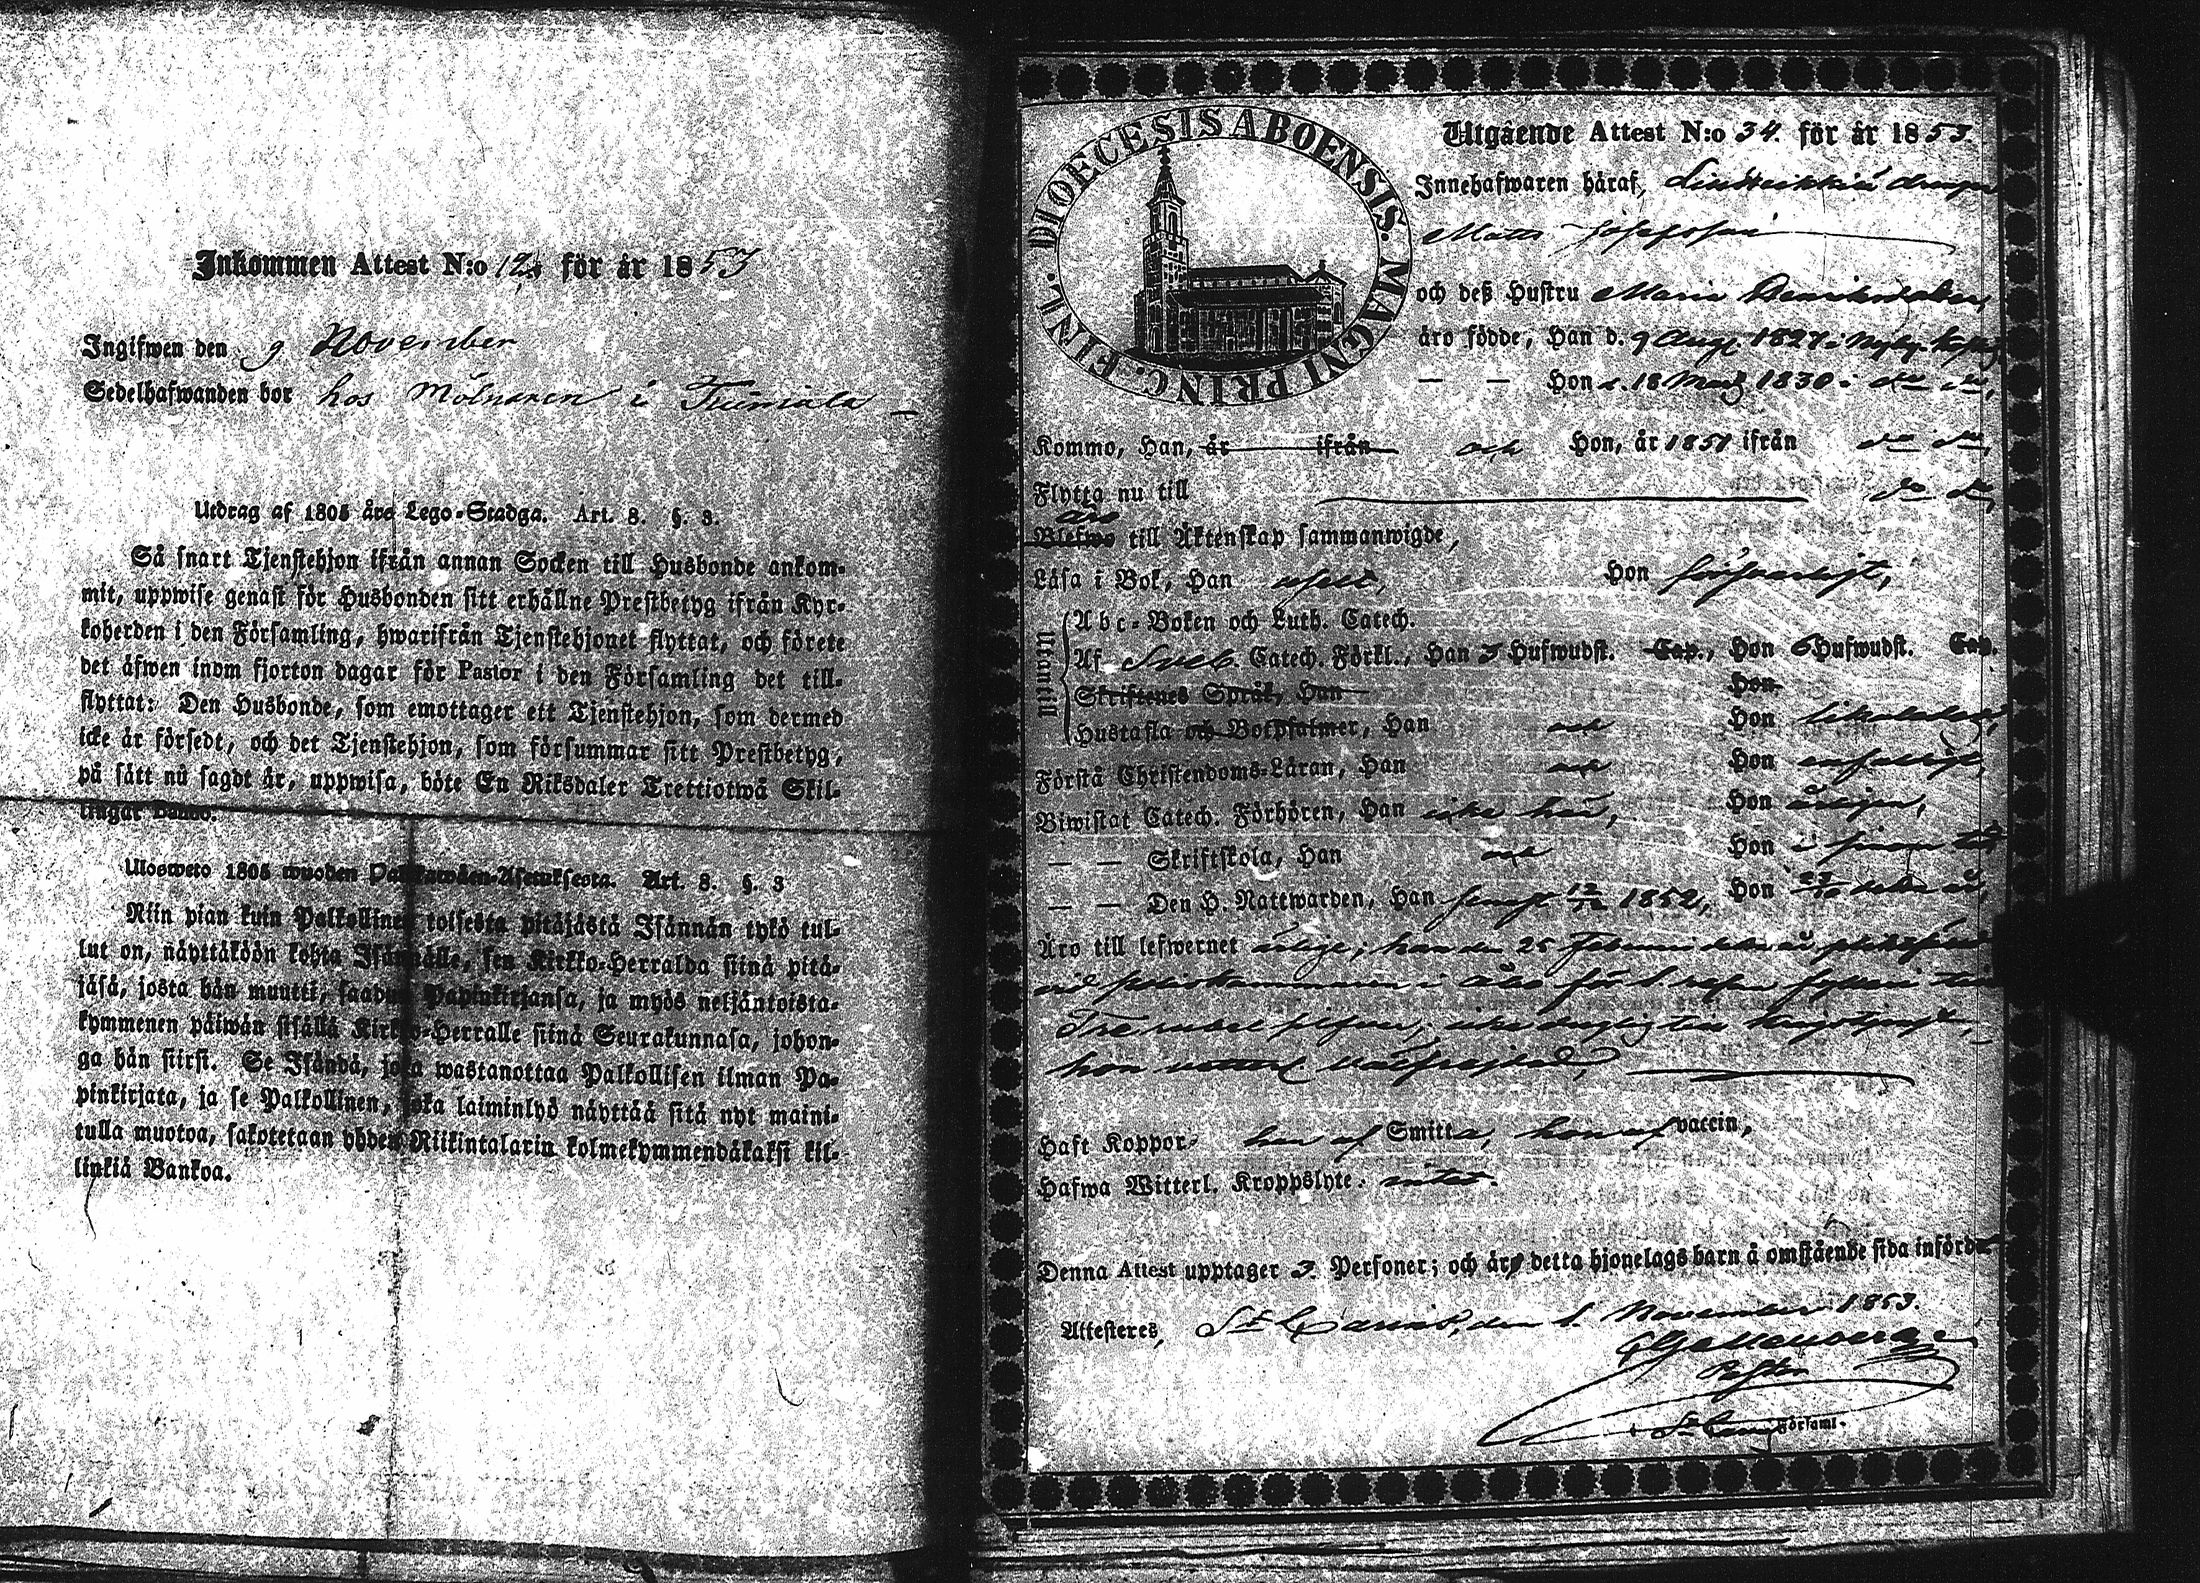 Inkommen Attest N:o 12 för år 1853
Ingifwen den 9 November
Sedelhafwanden bor hos Mölnaren i
Utdrag af 1805 års Lego-Stadga. Art. 8. §. 3.
Så snart Tjenstehjon ifrån annan Socken till Husbonde ankom-
mit, uppwise genast för Husbonden sitt erhållne Prestbetyg ifrån Kyr-
koherden i den Församling, hwarifrån Tjenstehjonet flyttat, och förete
det äfwen inom fjorton dagar för Pastor i den Församling det till-
flyttat: Den Husbonde, som emottager ett Tjenstehjon, som dermed
icke är försedt, och det Tjenstehjon, som försummar sitt Prestbetyg,
på sätt nu sagdt är, uppwisa, böte En Riksdaler Trettiotwå Skil-
lingar Banco.
Ulosweto 1805 wuoden Palkawäen-Asetuksesta. Art. 8. §. 3
Niin pian kuin Palkollinen toisesta pitäjästä Isännän tykö tul-
lut on, näyttäköön kohta Isännälle, sen Kirkko-Herralda siinä pitä-
jäsä, josta hän muutti, saadun Papinkirjansa, ja myös neljäntoista-
kymmenen päiwän sisällä Kirkko-Herralle siinä Seurakunnasa, johon-
ga hän siirsi. Se Isändä, joka wastanottaa Palkollisen ilman Pa-
pinkirjata, ja se Palkollinen, joka laiminlyö näyttää sitä nyt maini-
tulla muotoa, sakotetaan yhden Riikintalarin kolmekymmendäkaksi kil-
linkiä Bankoa.
DIOECESIS ABOENSIS. MAGNI PRINC. FINL.
Utgående Attest N:o 34. för år 1853.
Innehafwaren häraf,
Matts Josefsson
och deß Hustru Maria
äro födde, Han d. 9 Aug. 1827 i
— — Hon d. 18 1830 i do do,
Kommo, Han, år ifrån och Hon, år 1851 ifrån do do,
Flytta nu till do do,
äro
Blefwo till Äktenskap sammanwigde,
Läsa i Bok, Han Hon försvarligt,
Utantill
Abc-Boken och Luth. Catech.
Af Sveb. Catech. Förkl., Han 5 Hufwudst. Cap., Hon 6 Hufwudst. Cap.
Skriftenes Språk, Han Hon
Hustafla och Botpsalmer, Han och Hon likaledes,
Förstå Christendoms-Läran, Han och Hon enfaldigt,
Biwistat Catech. Förhören, Han icke här, Hon årligen,
— — Skriftskola, Han och Hon i sinom tid
— — Den H. Nattwarden, Han 12/12 1852, Hon detta år,
Äro till lefwernet ärlige; han den 25 Februari detta år
vid i Åbo för
Tre rubel
hon välfräjdad,
Haft Koppor han af Smitta, hon af vaccin,
Hafwa Witterl. Kroppslyte intet.
Denna Attest upptager 3 Personer; och äro detta hjonelags barn å omstående sida införde
Attesteres, St Carins, den 1. November 1853.
Pastor
i St Carins Församl.